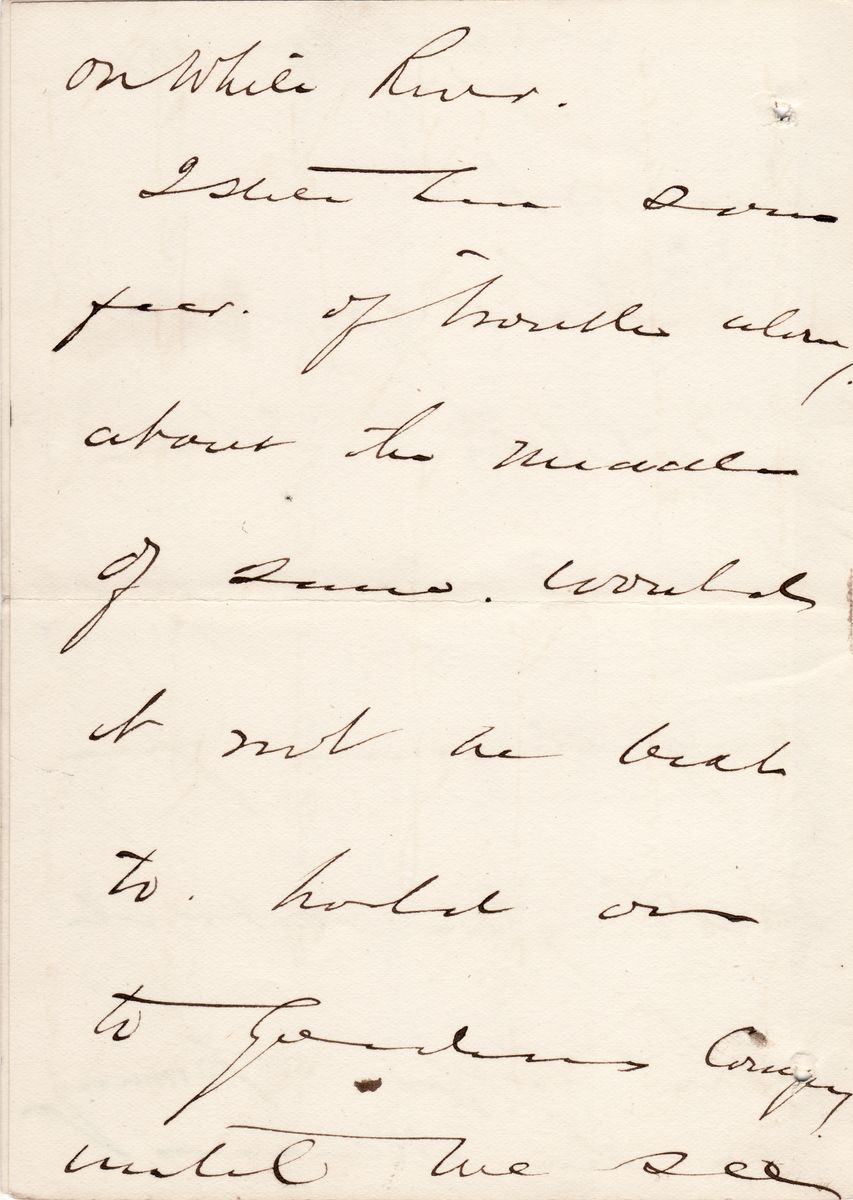 on White River.
I still have some
fear. of trouble along
about the middle
of June. Would
it not be best
to. hold on
to Gordons Compy
until we see